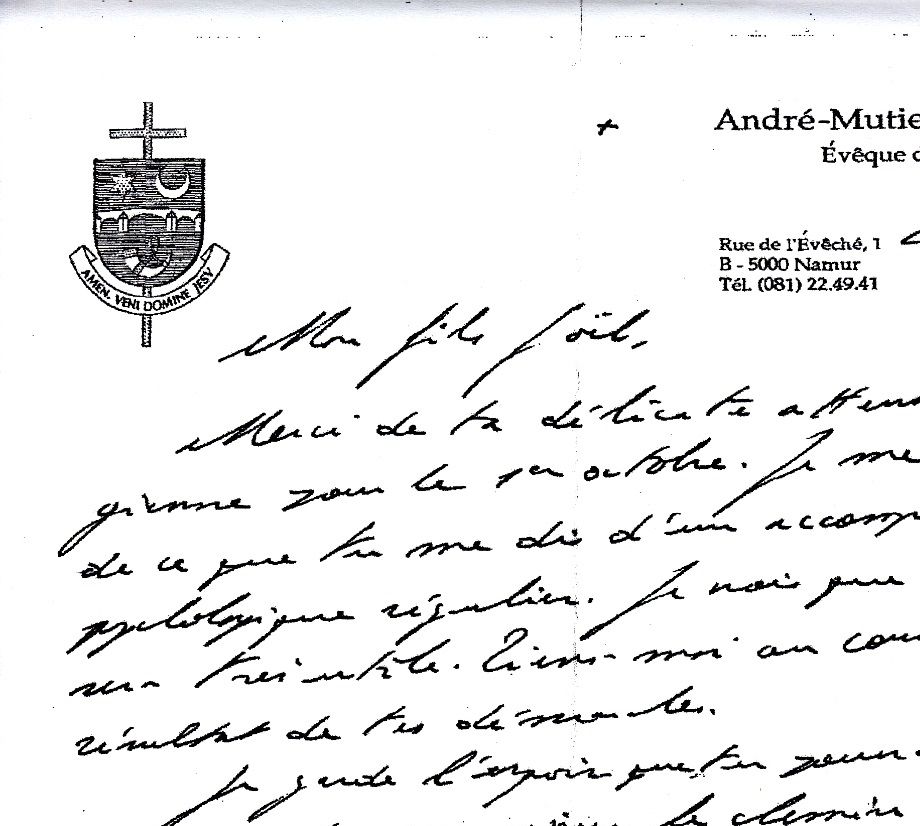 André-Mutie
Évêque d
Rue de l'Évêché, 1
B - 5000 Namur
Tél. (081) 22.49.41
AMEN. VENI DOMINE JESV
Mon fils Joël,
Merci de ta délicate atten
gienne pour le 1er octobre. Je me
de ce que tu me dis d'un accomp
psychologique régulier. Je crois que
sera très utile. Tiens-moi au cour
résultat de tes démarches.
Je garde l'espoir que tu pour
le chemin